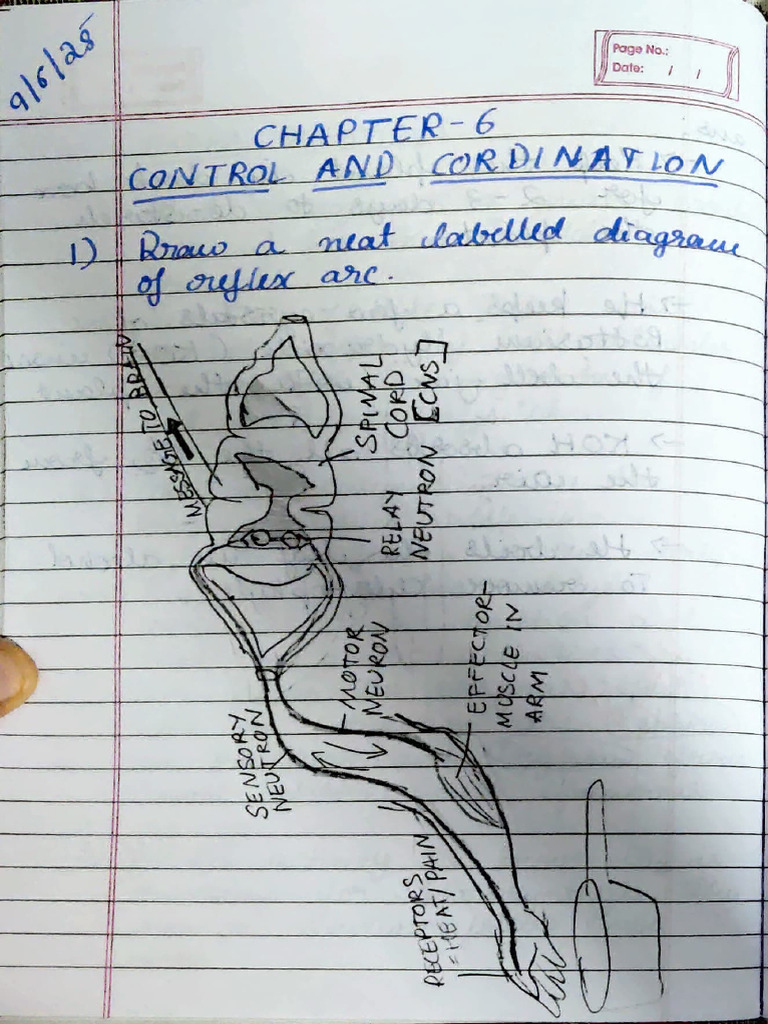 9/6/25
Page No.:
Date: / /
CHAPTER-6
CONTROL AND CORDINATION
1) Draw a neat labelled diagram
of reflex arc.
MESSAGE TO BRAIN
SPINAL
CORD
[CNS]
RELAY
NEUTRON
MOTOR
NEURON
SENSORY
NEUTRON
EFFECTOR-
MUSCLE IN
ARM
RECEPTORS
=HEAT/PAIN